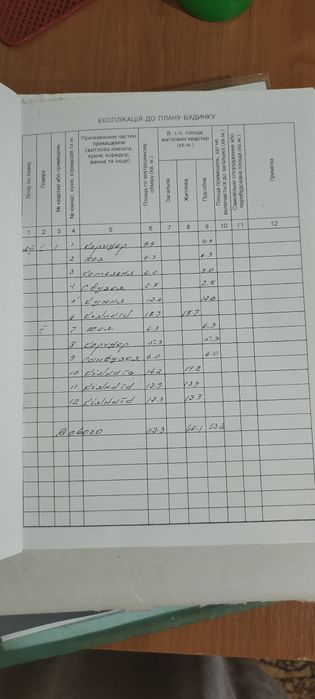 ЕКСПЛІКАЦІЯ ДО ПЛАНУ БУДИНКУ
Літер по плану
Поверх
№ квартир або приміщень
№ кімнат, кухні, коридорів та ін.
Призначення частин приміщення (житлова кімната, кухня, коридор, ванна та інше)
Площа по внутрішньому обміру (кв. м.)
В. т. ч. площа житлових квартир (кв.м.)
Загальна
Житлова
Підсобна
Площа приміщень, що не включається до загальної (кв. м.)
Самовільно споруджена або перебудована площа (кв.м.)
Примітка
1 2 3 4 5 6 7 8 9 10 11 12
І 1 1 Коридор 9.9 9.9
2 Хол 6.3 6.3
3 Котельня 3.0 3.0
4 С вузол 2.8 2.8
5 Кухня 12.6 12.6
6 Кімната 18.7 18.7
7 Хол 6.3 6.3
8 Коридор 5.3 5.3
9 Санвузол 6.0 6.0
10 Кімната 14.2 14.2
11 Кімната 13.9 13.9
12 Кімната 13.3 13.3
Всього 112.3 60.1 52.2